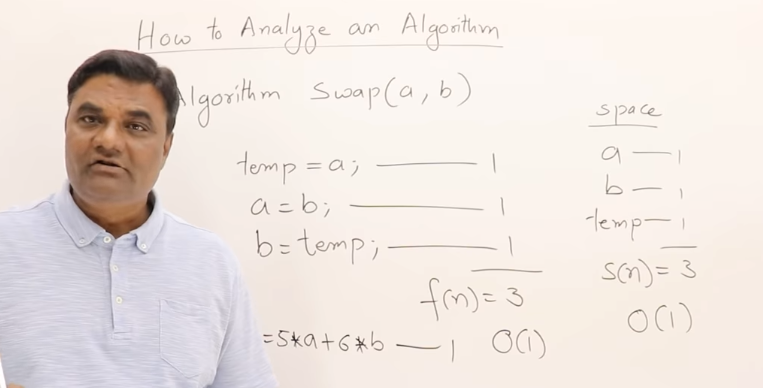 How to Analyze an Algorithm
Algorithm Swap(a, b)
temp = a; —— 1
a = b; —— 1
b = temp; —— 1
f(n) = 3
=5*a+6*b —— 1 O(1)
space
a — 1
b — 1
temp — 1
S(n) = 3
O(1)